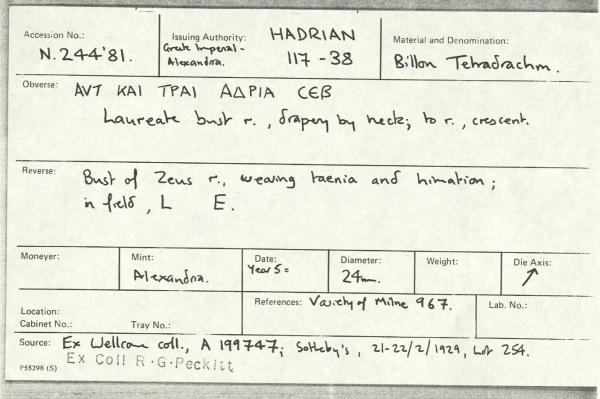 Accession No.:
N.244'81.
Issuing Authority: HADRIAN
Greek Imperial -
Alexandria. 117 - 38
Material and Denomination:
Billon Tetradrachm.
Obverse: ΑVΤ ΚΑΙ ΤΡΑΙ ΑΔΡΙΑ CЄΒ
Laureate bust r., drapery by neck; to r., crescent.
Reverse: Bust of Zeus r., wearing taenia and himation;
in field, L E.
Moneyer:
Mint:
Alexandria.
Date:
Year 5 =
Diameter:
24mm.
Weight:
Die Axis:
↗
Location:
Cabinet No.: Tray No.:
References: Variety of Milne 967.
Lab. No.:
Source: Ex Wellcome coll., A 199747; Sotheby's, 21-22/2/1929, Lot 254.
Ex Coll R·G·Peckitt
P55298 (S)